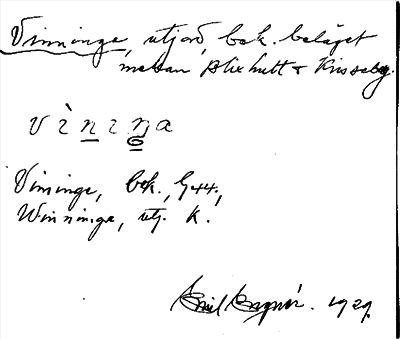 Vinninge, utjord, bek. beläget
mellan Blixhult & Krisseboy.
vìnıŋa
Vininge, bek., G44.,
Winninge, utj. K.
Emil 1929.